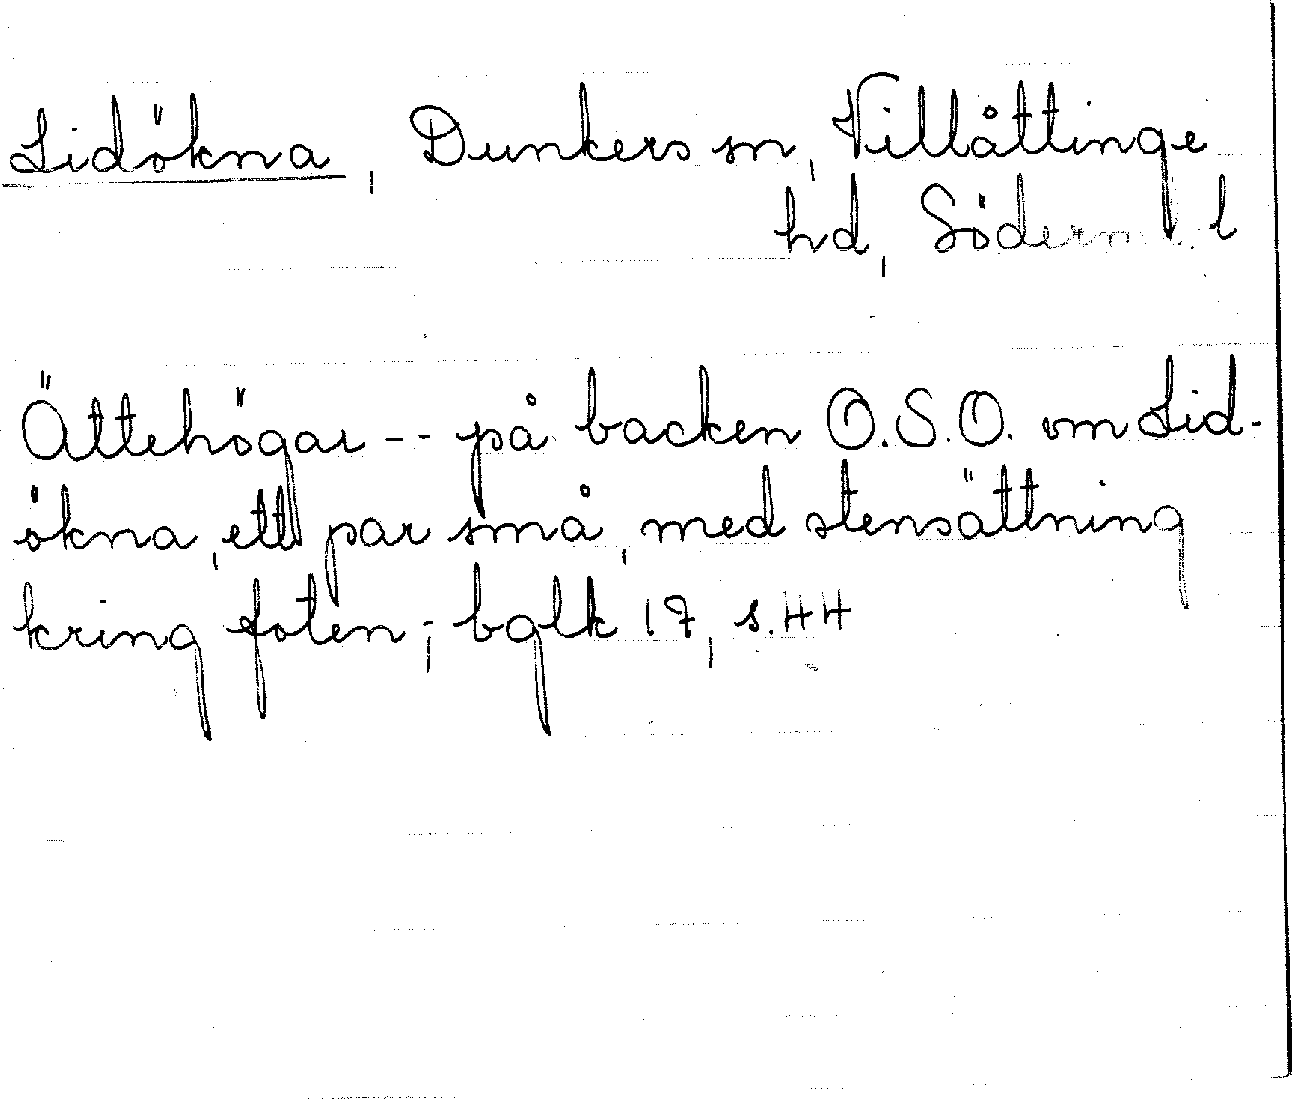 Lidökna, Dunkers sn, Villåttinge
hd, Söderm. l
Ättehögar -- på backen O.S.O. om Lid-
ökna, ett par små, med stensättning
kring foten; bglk 17, s. 44